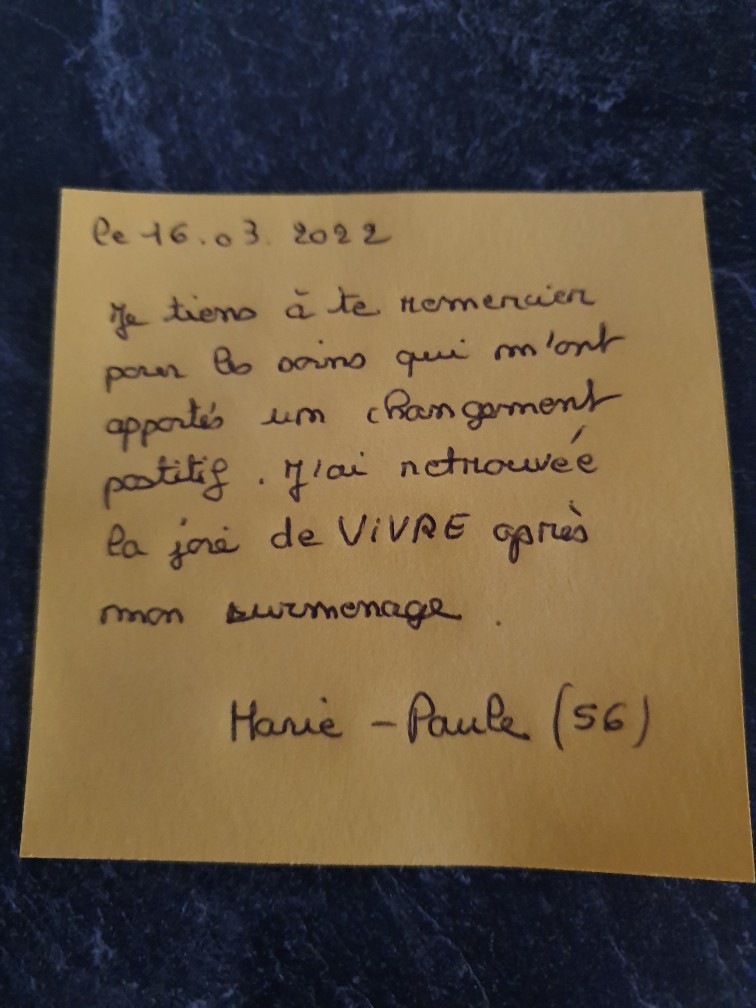 le 16.03.2022
Je tiens à te remercier
pour les soins qui m'ont
apportés un changement
postitif. J'ai retrouvée
la joie de ViVRE après
mon surmenage.
Marie - Paule (56)